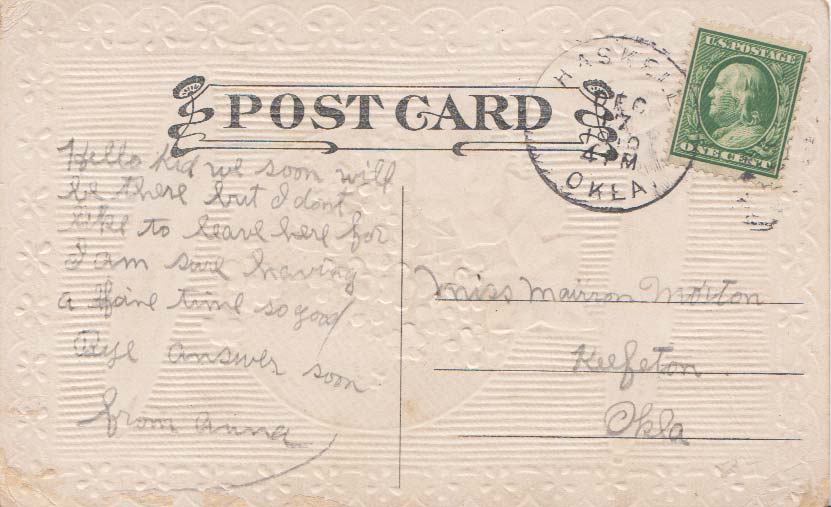 POST CARD
HASKELL
OKLA
U.S. POSTAGE
ONE CENT
Hello kid we soon will
be there but I dont
like to leave here for
I am sure having
a fine time so good
Bye Answer soon
from Anna
Miss Mairron Morton
Keefeton
Okla